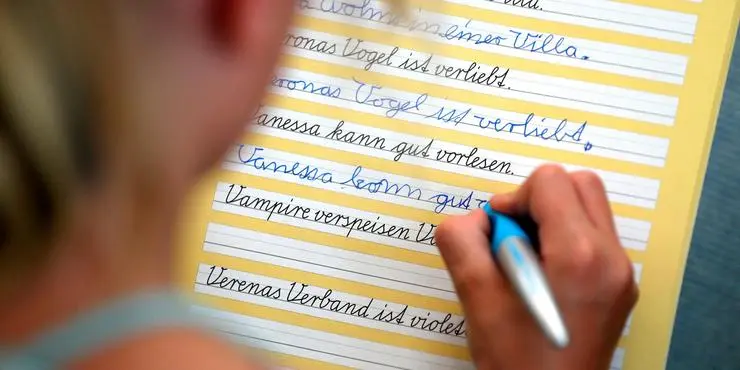 in einer Villa.
Vogel ist verliebt.
Vogel ist verliebt.
Vanessa kann gut vorlesen.
Vanessa kann gut
Vampire verspeisen
Verenas Verband ist violet